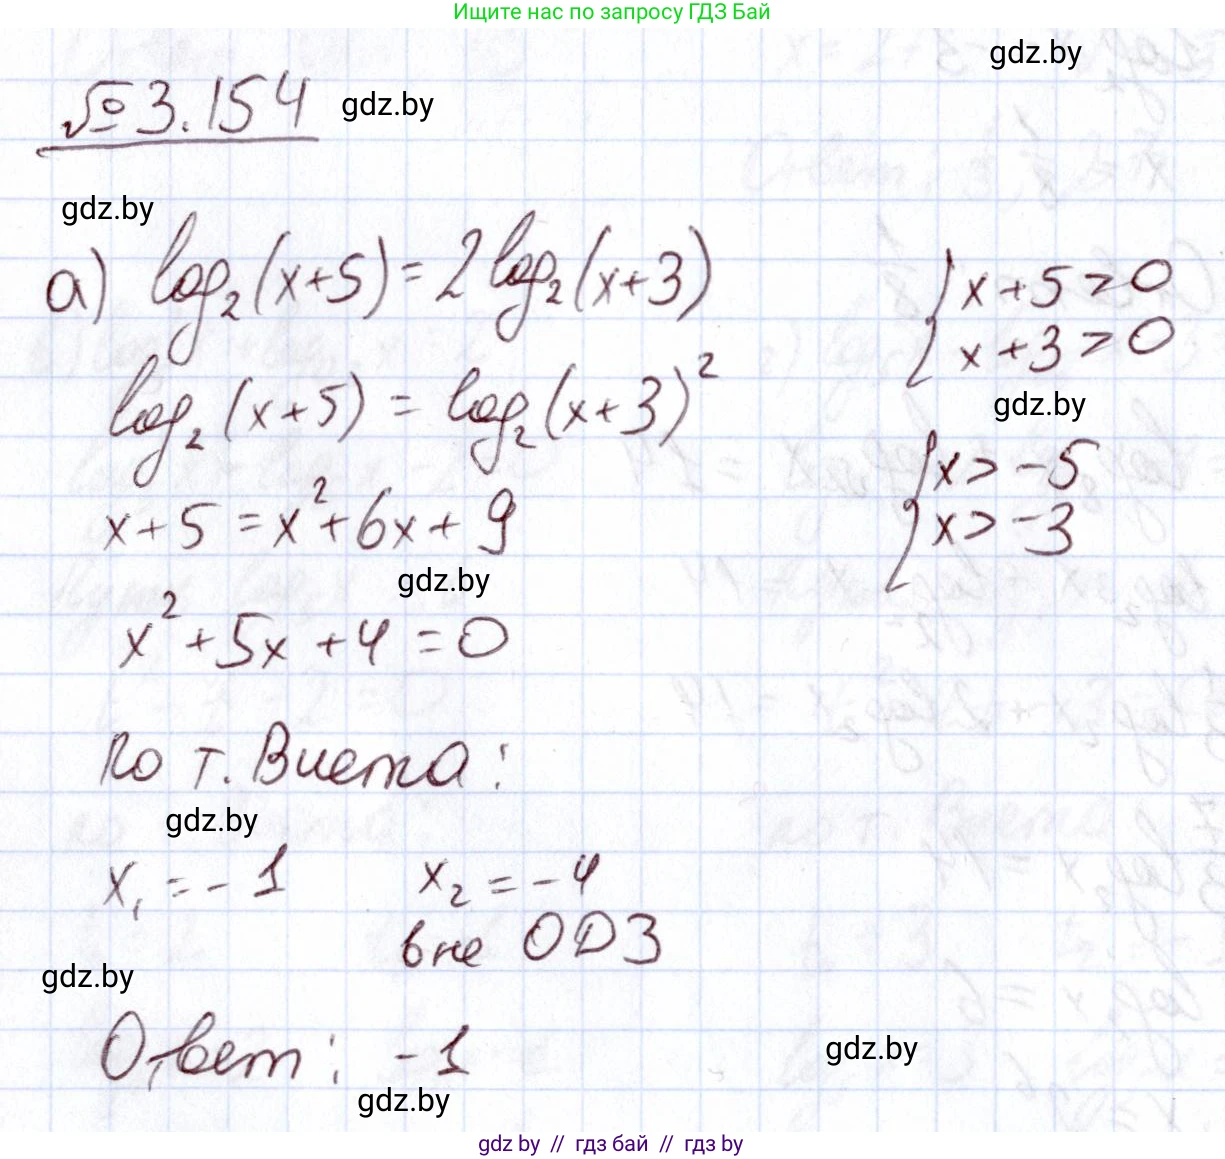 Ищите нас по запросу ГДЗ Бай
gdz.by
№ 3.154
gdz.by
gdz.by
а) log₂(x+5) = 2log₂(x+3)
{ x+5 > 0
x+3 > 0
gdz.by
log₂(x+5) = log₂(x+3)²
{ x > -5
x > -3
x+5 = x²+6x+9
gdz.by
x²+5x+4=0
По т. Виета:
gdz.by
x₁ = -1 x₂ = -4
вне ОДЗ
gdz.by
Ответ: -1
gdz.by
gdz.by
gdz by // гдз бай // gdz by